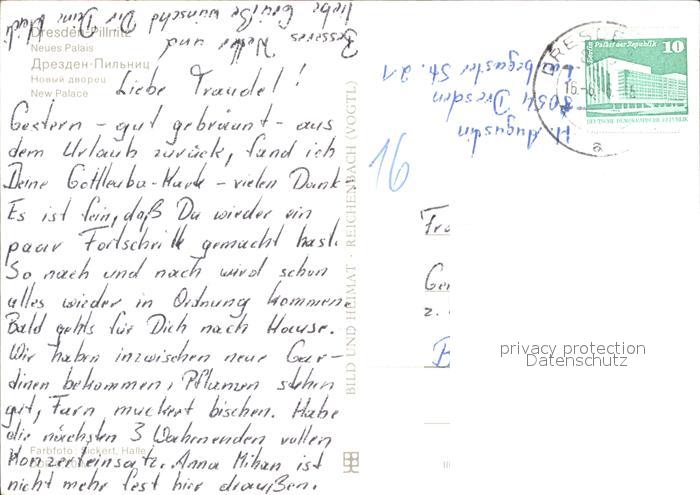 Dresden-Pillnitz
Neues Palais
Дрезден-Пильниц
Новый дворец
New Palace
Liebe Traudel!
Gestern - gut gebräunt - aus
dem Urlaub zurück, fand ich
Deine Gottleuba-Karte - vielen Dank
Es ist fein, daß Du wieder ein
paar Fortschritte gemacht hast.
So nach und nach wird schon
alles wieder in Ordnung kommen.
Bald gehts für Dich nach Hause.
Wir haben inzwischen neue Gar-
dinen bekommen, Pflanzen stehen
gut, Farn muckert bischen. Habe
die nächsten 3 Wochenenden vollen
Konzerteinsatz. Anna Mihan ist
nicht mehr fest hier draußen.
Besseres Wetter und
liebe Grüße wünscht Dir Deine
Farbfoto: Sickert, Halle
BILD UND HEIMAT · REICHENBACH (VOGTL)
H. Augustin
8054 Dresden
Str. 21
16
DRESDEN
16.-6.
a
Berlin Palast der Republik
10
DEUTSCHE DEMOKRATISCHE REPUBLIK
Fra
Gen
z.
B
privacy protection
Datenschutz